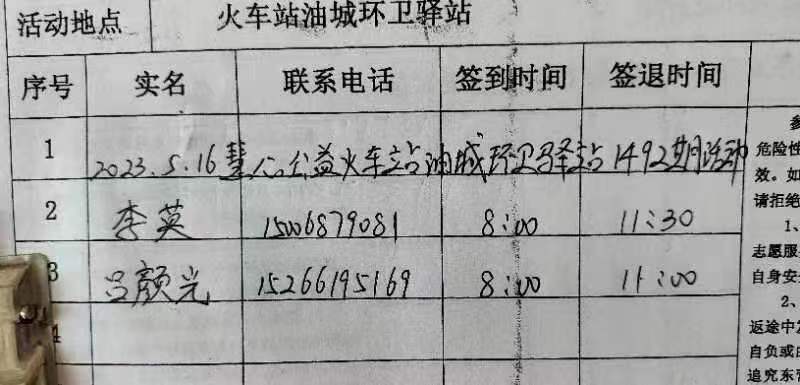 活动地点 火车站油城环卫驿站
序号 实名 联系电话 签到时间 签退时间
1 2023.5.16慧人公益火车站油城环卫驿站1492期活动
2 李英 15006879081 8:00 11:30
3 吕颜光 15266195169 8:00 11:00
4
危险性
效。如
请拒绝
1、
志愿服
自身安全
2、
返途中发
自负或由
追究东营